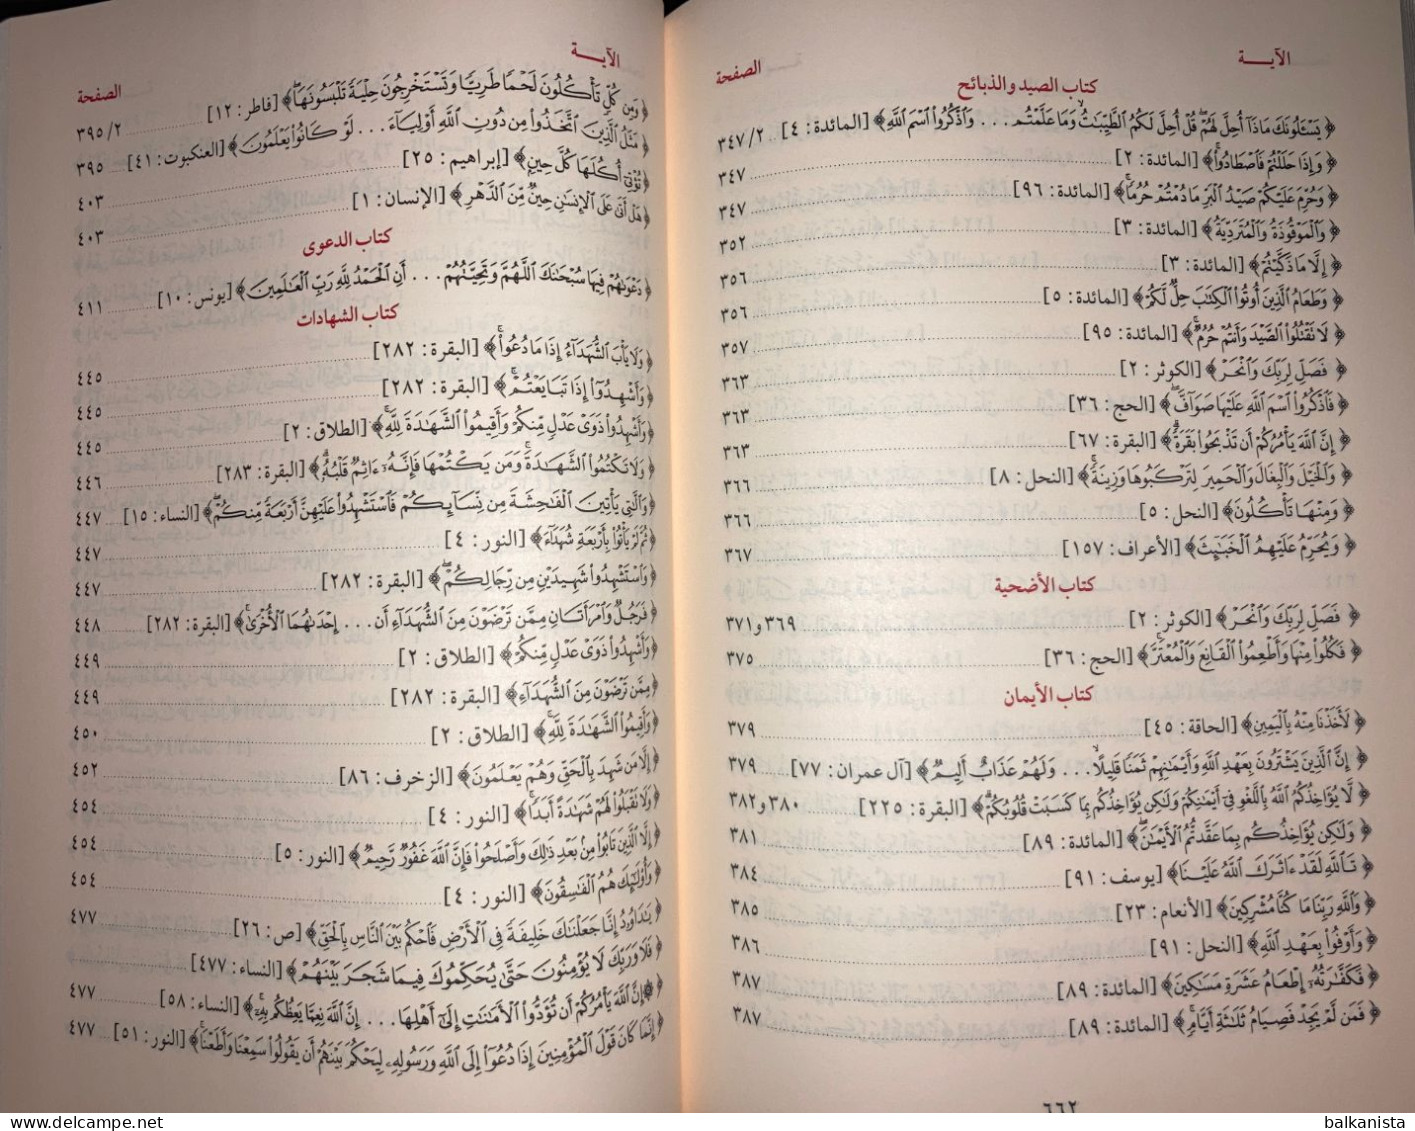 الآيـــة
الصفحة
كتاب الصيد والذبائح
﴿ يَسْـَٔلُونَكَ مَاذَآ أُحِلَّ لَهُمْ ۖ قُلْ أُحِلَّ لَكُمُ ٱلطَّيِّبَـٰتُ ۙ وَمَا عَلَّمْتُم ... وَٱذْكُرُوا۟ ٱسْمَ ٱللَّهِ﴾ [المائدة: ٤] ... ٣٤٧/٢
﴿ وَإِذَا حَلَلْتُمْ فَٱصْطَادُوا۟﴾ [المائدة: ٢] ... ٣٤٧
﴿ وَحُرِّمَ عَلَيْكُمْ صَيْدُ ٱلْبَرِّ مَا دُمْتُمْ حُرُمًا﴾ [المائدة: ٩٦] ... ٣٤٧
﴿ وَٱلْمَوْقُوذَةُ وَٱلْمُتَرَدِّيَةُ﴾ [المائدة: ٣] ... ٣٥٢
﴿ إِلَّا مَا ذَكَّيْتُمْ﴾ [المائدة: ٣] ... ٣٥٦
﴿ وَطَعَامُ ٱلَّذِينَ أُوتُوا۟ ٱلْكِتَـٰبَ حِلٌّ لَّكُمْ﴾ [المائدة: ٥] ... ٣٥٦
﴿ لَا تَقْتُلُوا۟ ٱلصَّيْدَ وَأَنتُمْ حُرُمٌ﴾ [المائدة: ٩٥] ... ٣٥٧
﴿ فَصَلِّ لِرَبِّكَ وَٱنْحَرْ﴾ [الكوثر: ٢] ... ٣٦٣
﴿ فَٱذْكُرُوا۟ ٱسْمَ ٱللَّهِ عَلَيْهَا صَوَآفَّ﴾ [الحج: ٣٦] ... ٣٦٣
﴿ إِنَّ ٱللَّهَ يَأْمُرُكُمْ أَن تَذْبَحُوا۟ بَقَرَةً﴾ [البقرة: ٦٧] ... ٣٦٣
﴿ وَٱلْخَيْلَ وَٱلْبِغَالَ وَٱلْحَمِيرَ لِتَرْكَبُوهَا وَزِينَةً﴾ [النحل: ٨] ... ٣٦٦
﴿ وَمِنْهَا تَأْكُلُونَ﴾ [النحل: ٥] ... ٣٦٦
﴿ وَيُحَرِّمُ عَلَيْهِمُ ٱلْخَبَـٰٓئِثَ﴾ [الأعراف: ١٥٧] ... ٣٦٧
كتاب الأضحية
﴿ فَصَلِّ لِرَبِّكَ وَٱنْحَرْ﴾ [الكوثر: ٢] ... ٣٦٩ و ٣٧١
﴿ فَكُلُوا۟ مِنْهَا وَأَطْعِمُوا۟ ٱلْقَانِعَ وَٱلْمُعْتَرَّ﴾ [الحج: ٣٦] ... ٣٧٥
كتاب الأيمان
﴿ لَأَخَذْنَا مِنْهُ بِٱلْيَمِينِ﴾ [الحاقة: ٤٥] ... ٣٧٩
﴿ إِنَّ ٱلَّذِينَ يَشْتَرُونَ بِعَهْدِ ٱللَّهِ وَأَيْمَـٰنِهِمْ ثَمَنًا قَلِيلًا ... وَلَهُمْ عَذَابٌ أَلِيمٌ﴾ [آل عمران: ٧٧] ... ٣٧٩
﴿ لَّا يُؤَاخِذُكُمُ ٱللَّهُ بِٱللَّغْوِ فِىٓ أَيْمَـٰنِكُمْ وَلَـٰكِن يُؤَاخِذُكُم بِمَا كَسَبَتْ قُلُوبُكُمْ﴾ [البقرة: ٢٢٥] ... ٣٨٠ و ٣٨٢
﴿ وَلَـٰكِن يُؤَاخِذُكُم بِمَا عَقَّدتُّمُ ٱلْأَيْمَـٰنَ﴾ [المائدة: ٨٩] ... ٣٨١
﴿ تَٱللَّهِ لَقَدْ ءَاثَرَكَ ٱللَّهُ عَلَيْنَا﴾ [يوسف: ٩١] ... ٣٨٤
﴿ وَٱللَّهِ رَبِّنَا مَا كُنَّا مُشْرِكِينَ﴾ [الأنعام: ٢٣] ... ٣٨٥
﴿ وَأَوْفُوا۟ بِعَهْدِ ٱللَّهِ﴾ [النحل: ٩١] ... ٣٨٦
﴿ فَكَفَّـٰرَتُهُۥٓ إِطْعَامُ عَشَرَةِ مَسَـٰكِينَ﴾ [المائدة: ٨٩] ... ٣٨٧
﴿ فَمَن لَّمْ يَجِدْ فَصِيَامُ ثَلَـٰثَةِ أَيَّامٍ﴾ [المائدة: ٨٩] ... ٣٨٧
٦٦٢
الآيـــة
الصفحة
﴿وَمِن كُلٍّ تَأْكُلُونَ لَحْمًا طَرِيًّا وَتَسْتَخْرِجُونَ حِلْيَةً تَلْبَسُونَهَا﴾ [فاطر: ١٢] ... ٣٩٥/٢
﴿مَثَلُ ٱلَّذِينَ ٱتَّخَذُوا۟ مِن دُونِ ٱللَّهِ أَوْلِيَآءَ ... لَوْ كَانُوا۟ يَعْلَمُونَ﴾ [العنكبوت: ٤١] ... ٣٩٥
﴿تُؤْتِىٓ أُكُلَهَا كُلَّ حِينٍ﴾ [إبراهيم: ٢٥] ... ٤٠٣
﴿هَلْ أَتَىٰ عَلَى ٱلْإِنسَـٰنِ حِينٌ مِّنَ ٱلدَّهْرِ﴾ [الإنسان: ١] ... ٤٠٣
كتاب الدعوى
﴿دَعْوَىٰهُمْ فِيهَا سُبْحَـٰنَكَ ٱللَّهُمَّ وَتَحِيَّتُهُمْ ... أَنِ ٱلْحَمْدُ لِلَّهِ رَبِّ ٱلْعَـٰلَمِينَ﴾ [يونس: ١٠] ... ٤١١
كتاب الشهادات
﴿وَلَا يَأْبَ ٱلشُّهَدَآءُ إِذَا مَا دُعُوا۟﴾ [البقرة: ٢٨٢] ... ٤٤٥
﴿وَأَشْهِدُوٓا۟ إِذَا تَبَايَعْتُمْ﴾ [البقرة: ٢٨٢] ... ٤٤٥
﴿وَأَشْهِدُوا۟ ذَوَىْ عَدْلٍ مِّنكُمْ وَأَقِيمُوا۟ ٱلشَّهَـٰدَةَ لِلَّهِ﴾ [الطلاق: ٢] ... ٤٤٥
﴿وَلَا تَكْتُمُوا۟ ٱلشَّهَـٰدَةَ وَمَن يَكْتُمْهَا فَإِنَّهُۥٓ ءَاثِمٌ قَلْبُهُ﴾ [البقرة: ٢٨٣] ... ٤٤٦
﴿وَٱلَّـٰتِى يَأْتِينَ ٱلْفَـٰحِشَةَ مِن نِّسَآئِكُمْ فَٱسْتَشْهِدُوا۟ عَلَيْهِنَّ أَرْبَعَةً مِّنكُمْ﴾ [النساء: ١٥] ... ٤٤٧
﴿ثُمَّ لَمْ يَأْتُوا۟ بِأَرْبَعَةِ شُهَدَآءَ﴾ [النور: ٤] ... ٤٤٧
﴿وَٱسْتَشْهِدُوا۟ شَهِيدَيْنِ مِن رِّجَالِكُمْ﴾ [البقرة: ٢٨٢] ... ٤٤٧
﴿فَرَجُلٌ وَٱمْرَأَتَانِ مِمَّن تَرْضَوْنَ مِنَ ٱلشُّهَدَآءِ أَن ... إِحْدَىٰهُمَا ٱلْأُخْرَىٰ﴾ [البقرة: ٢٨٢] ... ٤٤٨
﴿وَأَشْهِدُوا۟ ذَوَىْ عَدْلٍ مِّنكُمْ﴾ [الطلاق: ٢] ... ٤٤٩
﴿مِمَّن تَرْضَوْنَ مِنَ ٱلشُّهَدَآءِ﴾ [البقرة: ٢٨٢] ... ٤٤٩
﴿وَأَقِيمُوا۟ ٱلشَّهَـٰدَةَ لِلَّهِ﴾ [الطلاق: ٢] ... ٤٥٠
﴿إِلَّا مَن شَهِدَ بِٱلْحَقِّ وَهُمْ يَعْلَمُونَ﴾ [الزخرف: ٨٦] ... ٤٥٢
﴿وَلَا تَقْبَلُوا۟ لَهُمْ شَهَـٰدَةً أَبَدًا﴾ [النور: ٤] ... ٤٥٤
﴿إِلَّا ٱلَّذِينَ تَابُوا۟ مِنۢ بَعْدِ ذَٰلِكَ وَأَصْلَحُوا۟ فَإِنَّ ٱللَّهَ غَفُورٌ رَّحِيمٌ﴾ [النور: ٥] ... ٤٥٤
﴿وَأُو۟لَـٰٓئِكَ هُمُ ٱلْفَـٰسِقُونَ﴾ [النور: ٤] ... ٤٥٤
﴿يَـٰدَاوُۥدُ إِنَّا جَعَلْنَـٰكَ خَلِيفَةً فِى ٱلْأَرْضِ فَٱحْكُم بَيْنَ ٱلنَّاسِ بِٱلْحَقِّ﴾ [ص: ٢٦] ... ٤٧٧
﴿فَلَا وَرَبِّكَ لَا يُؤْمِنُونَ حَتَّىٰ يُحَكِّمُوكَ فِيمَا شَجَرَ بَيْنَهُمْ﴾ [النساء: ٤٧٧]
﴿إِنَّ ٱللَّهَ يَأْمُرُكُمْ أَن تُؤَدُّوا۟ ٱلْأَمَـٰنَـٰتِ إِلَىٰٓ أَهْلِهَا ... إِنَّ ٱللَّهَ نِعِمَّا يَعِظُكُم بِهِ﴾ [النساء: ٥٨] ... ٤٧٧
﴿إِنَّمَا كَانَ قَوْلَ ٱلْمُؤْمِنِينَ إِذَا دُعُوٓا۟ إِلَى ٱللَّهِ وَرَسُولِهِۦ لِيَحْكُمَ بَيْنَهُمْ أَن يَقُولُوا۟ سَمِعْنَا وَأَطَعْنَا﴾ [النور: ٥١] ... ٤٧٧
delcampe.net
balkanista